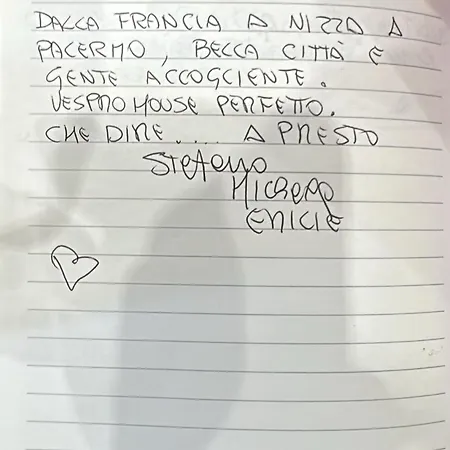 DALLA FRANCIA A NIZZA A
PALERMO, BELLA CITTÀ E
GENTE ACCOGLIENTE.
VESPRO HOUSE PERFETTO.
CHE DIRE.... A PRESTO
Stefano